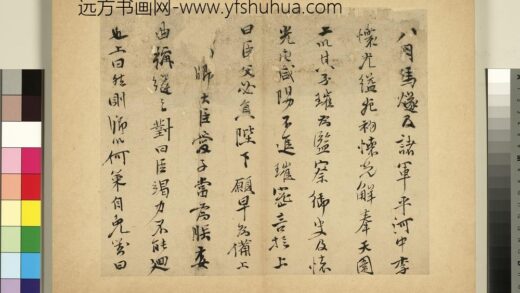 远方书画网-www.yfshuhua.com
八月馬燧及諸軍平河中李
懷光縊死初懷光解奉天圍
上以其子璀為監察御史及懷
光屯咸陽不進璀密言於上
曰臣父必負陛下願早為備上
卿大臣愛子當為朕委
曲縫之對曰臣竭力不能迴
也上曰然則卿以何策自免對曰